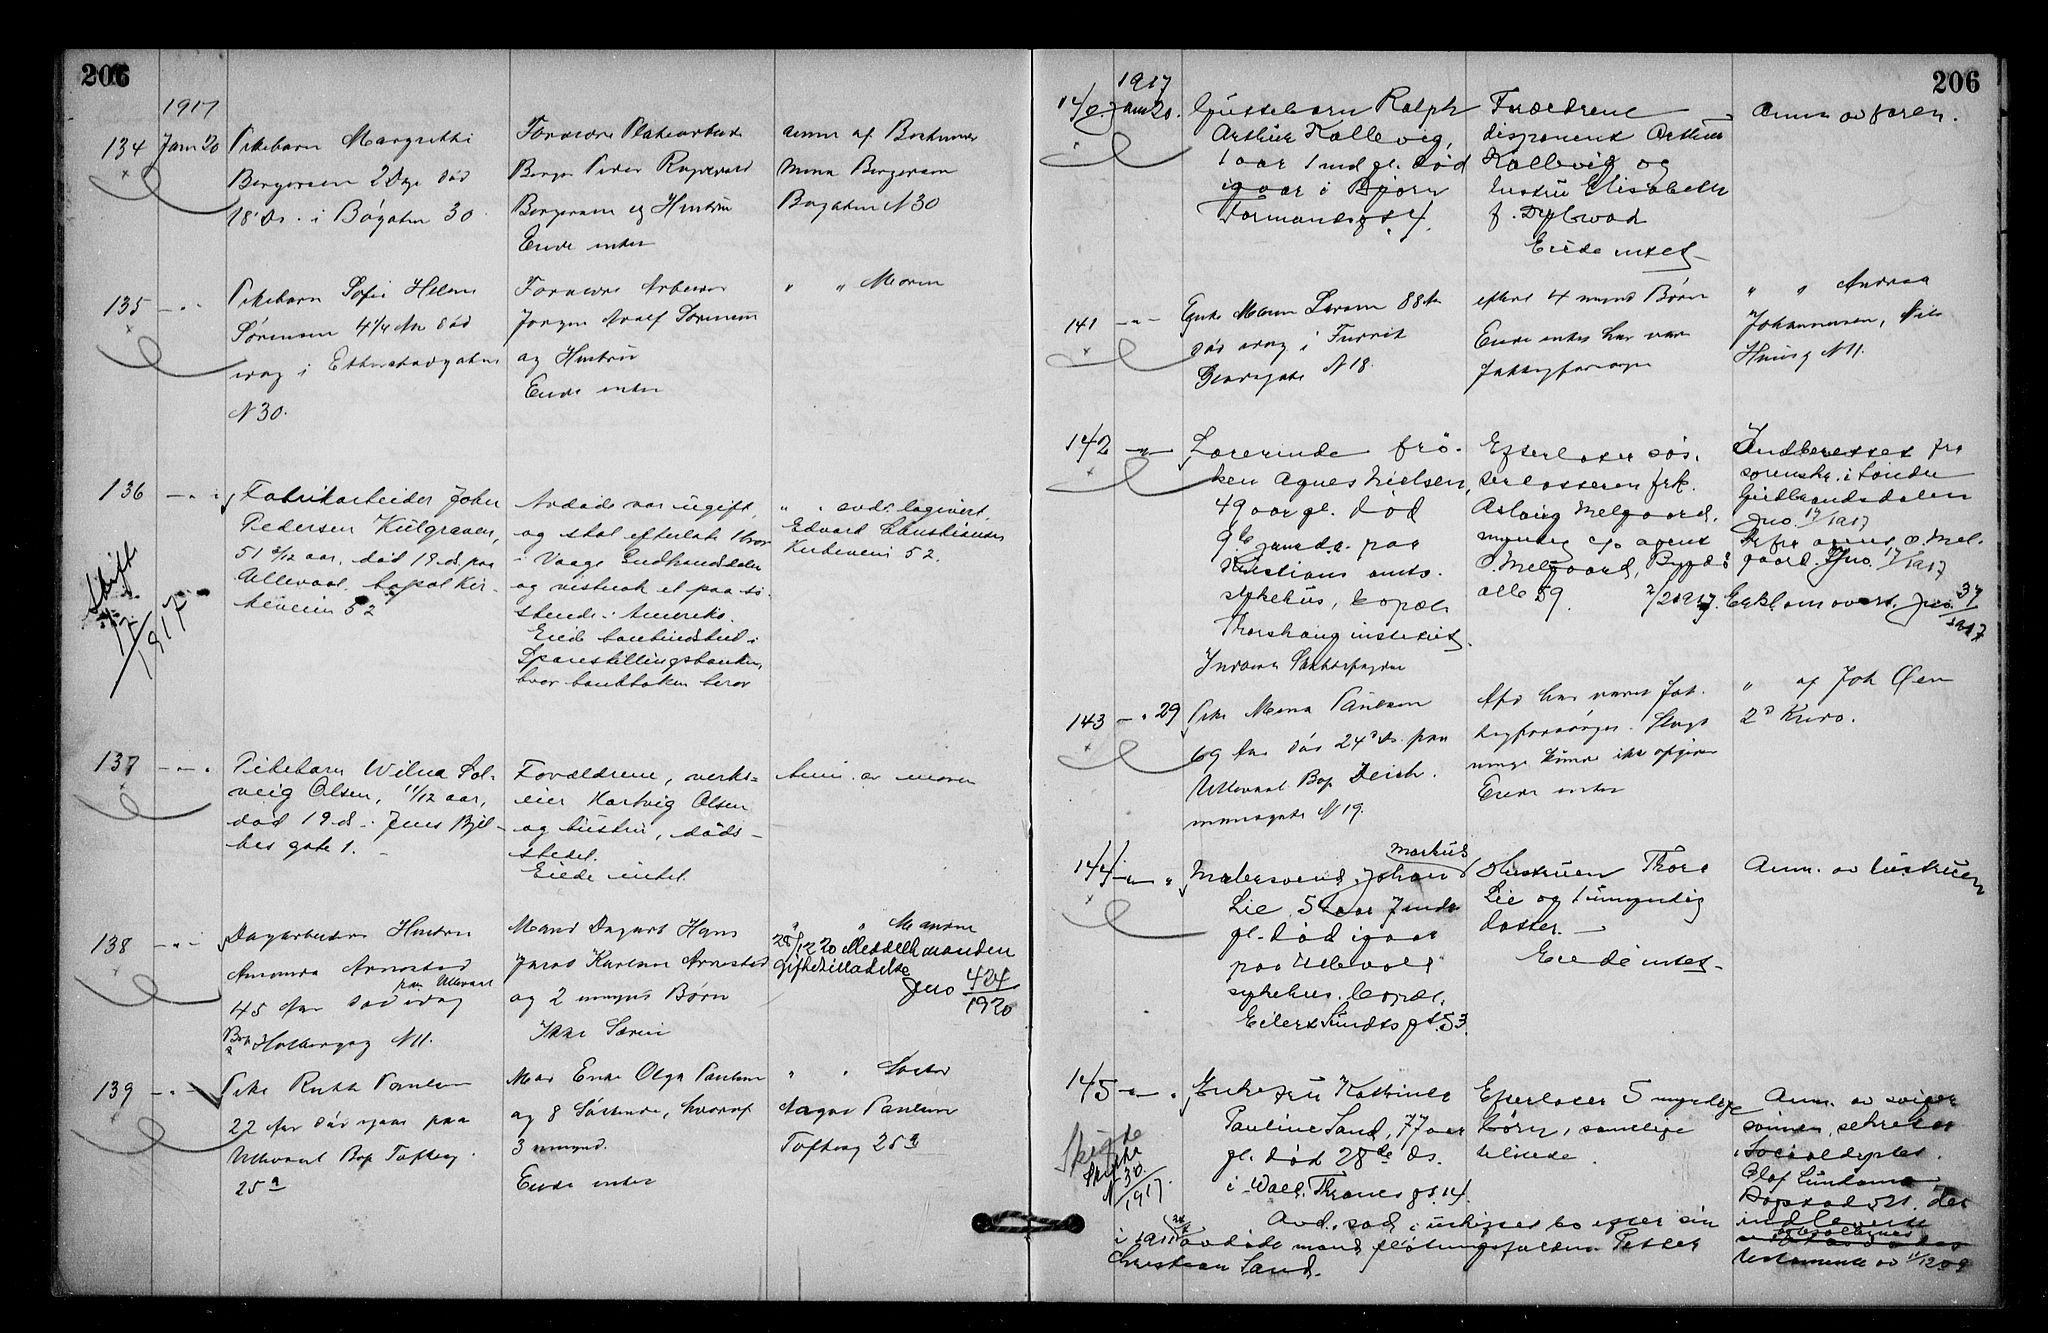 206
1917
134 Jan 20 Pikebarn Margrethe
Bergersen 2 Dage død
18' ds. i Bøgaten 30
Forældre Platearbeider
Berger Peder
Bergersen og Hustru
Eiede intet
Anm af Bestemor
Mina Bergersen
Bøgaten N 30
135 - " - Pikebarn Sofie Helene
Sørensen 4 1/4 Aar død
idag i Etterstadgaten
N 30.
Forældre Arbeider
Jørgen Adolf Sørensen
og Hustru
Eiede intet
" " Moren
136 - " - Fabrikarbeider Johan
Pedersen Kulgraven,
51 3/12 aar, død 19 ds. paa
Ullevaal, bopæl Kir-
keveien 52
Skifte
17/1917
Avdøde var ugift,
og skal efterlate 1 bror
i Vaage Gudbrandsdalen
og vistnok et par sø-
skende i Amerika.
Eiede bankindskud i
Spareskillingsbanken,
hvor bankboken beror
" " avdes logivert,
Edvard Christiansen
Kirkeveien 52.
137 - " - Pikebarn Wilna Sol-
veig Olsen, 11/12 aar,
død 19 ds. i Jens Bjel-
kes gate 1.
Forældrene, verks-
eier Hartvig Olsen
og hustru, døds-
stedet.
Eiede intet.
Anm. av moren
138 - " - Dagarbeider Hustru
Amanda Arnestad
45 Aar død idag
paa Ullevaal
Bop Holbergsg N 11.
Mand Dagarb Hans
Jacob Karlsen Arnestad
og 2 umynd Børn
Ikke Særeie
" " Manden
28/12 20 Meddelt manden
Giftetilladelse
Jno 424/1920
139 - " - Pike Ruth Paulsen
22 Aar død igaar paa
Ullevaal Bop Tofteg.
25 a
Mor Enke Olga Paulsen
og 8 Søskende, hvoraf
3 umynd.
Eiede intet
" " Søster
Aagot Paulsen
Tofteg 25 a
206
1917
140. Jan 20. Guttebarn Ralph
Arthur Kallevig,
1 aar 1 md gl. død
igaar i Bjørn
Farmandsgt. 4.
Forældrene
disponent Arthur
Kallevig og
hustru Elisabeth
f. Dybwad
Eiede intet
Anm av faren.
141 - " - Enke Maren Larsen 88 Aar
død idag i Turrit
Gradsgate N 18.
efterl 4 mynd Børn
Eiede intet har vær
fattigforsørge
" " Andrea
Johannesen, Nils
Huusg N 11.
142 - " - Lærerinde frø-
ken Agnes Nielsen,
49 aar gl. død
9de jan ds. paa
Kristians amts.
sykehus, bopæl
Thorshaug institut.
Efterlater søs-
terdatteren frk.
Aslaug Melgaard,
myndig c/o agent
O. Melgaard, Bygdø
alle 59.
Indberettet fra
sorenskr. i Søndre
Gudbrandsdalen
Jno. 17/1917
O. Mel-
gaard. Jno. 17/1917
2/2 1917. Jno. 37/1917
143 - " 29 Pike Mina Paulsen
69 Aar død 24' ds. paa
Ullevaal Bop Deich-
mansgate N 19.
Afd har været fat-
tigforsørget. Slegt
ninge kunde ikke opgives
Eiede intet
" af Joh Øen
144 - " - Malersvend Johan
Markus
Lie, 51 aar 7 mdr
gl. død igaar
paa Ullevaal
sykehus. bopæl.
Eilert Sundts gt. 53
Hustruen Thora
Lie og 1 umyndig
datter. -
Eiede intet -
Anm. av hustruen
145 - " . Enkefru Kathrine
Pauline Sand, 77 aar
gl. død 28de ds.
i Wald. Thranes gt. 14.
Skifte
N 30
1917.
Efterlater 5 myndige
børn, samtlige
tilstede.
Anm. av sviger
sønnen, sekretær
i Socialdeptet.
Olaf
det
indleverte
testamente av 11/12 09
Avd. sad i uskiftet bo efter sin
i 1911 avdøde mand fløtningsfuldm. Petter
Christian Sand.